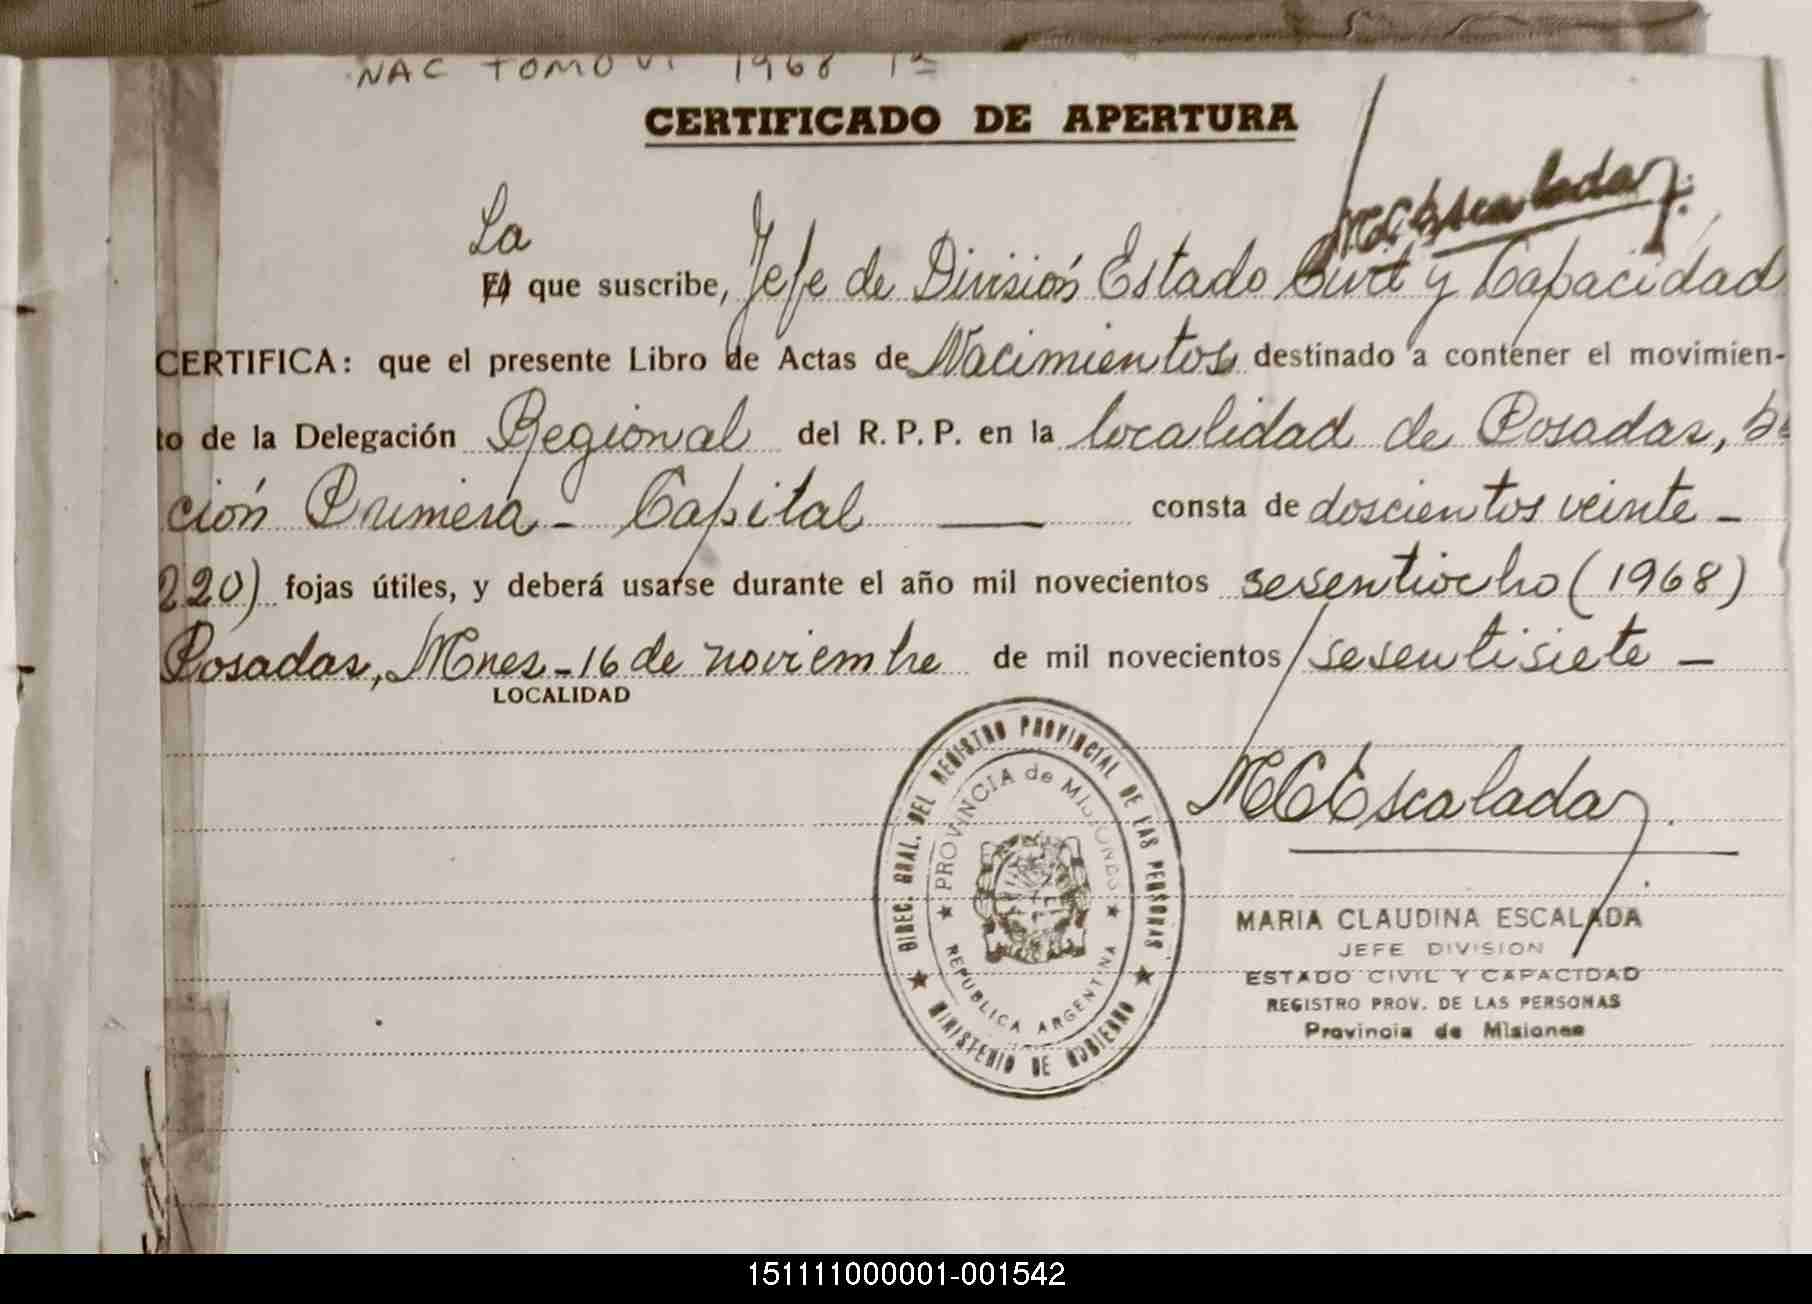 NAC TOMO VI 1968 1ª
CERTIFICADO DE APERTURA
MCEscalada
La
El que suscribe, Jefe de División Estado Civil y Capacidad
CERTIFICA: que el presente Libro de Actas de Nacimientos destinado a contener el movimien-
to de la Delegación Regional del R. P. P. en la localidad de Posadas, Se
ción Primera - Capital — consta de doscientos veinte -
220) fojas útiles, y deberá usarse durante el año mil novecientos sesentiocho (1968)
Posadas, Mnes - 16 de noviembre de mil novecientos sesentisiete -
LOCALIDAD
DIREC. GRAL. DEL REGISTRO PROVINCIAL DE LAS PERSONAS
PROVINCIA de MISIONES
REPUBLICA ARGENTINA
MINISTERIO DE GOBIERNO
MCEscalada
MARIA CLAUDINA ESCALADA
JEFE DIVISION
ESTADO CIVIL Y CAPACIDAD
REGISTRO PROV. DE LAS PERSONAS
Provincia de Misiones
151111000001-001542